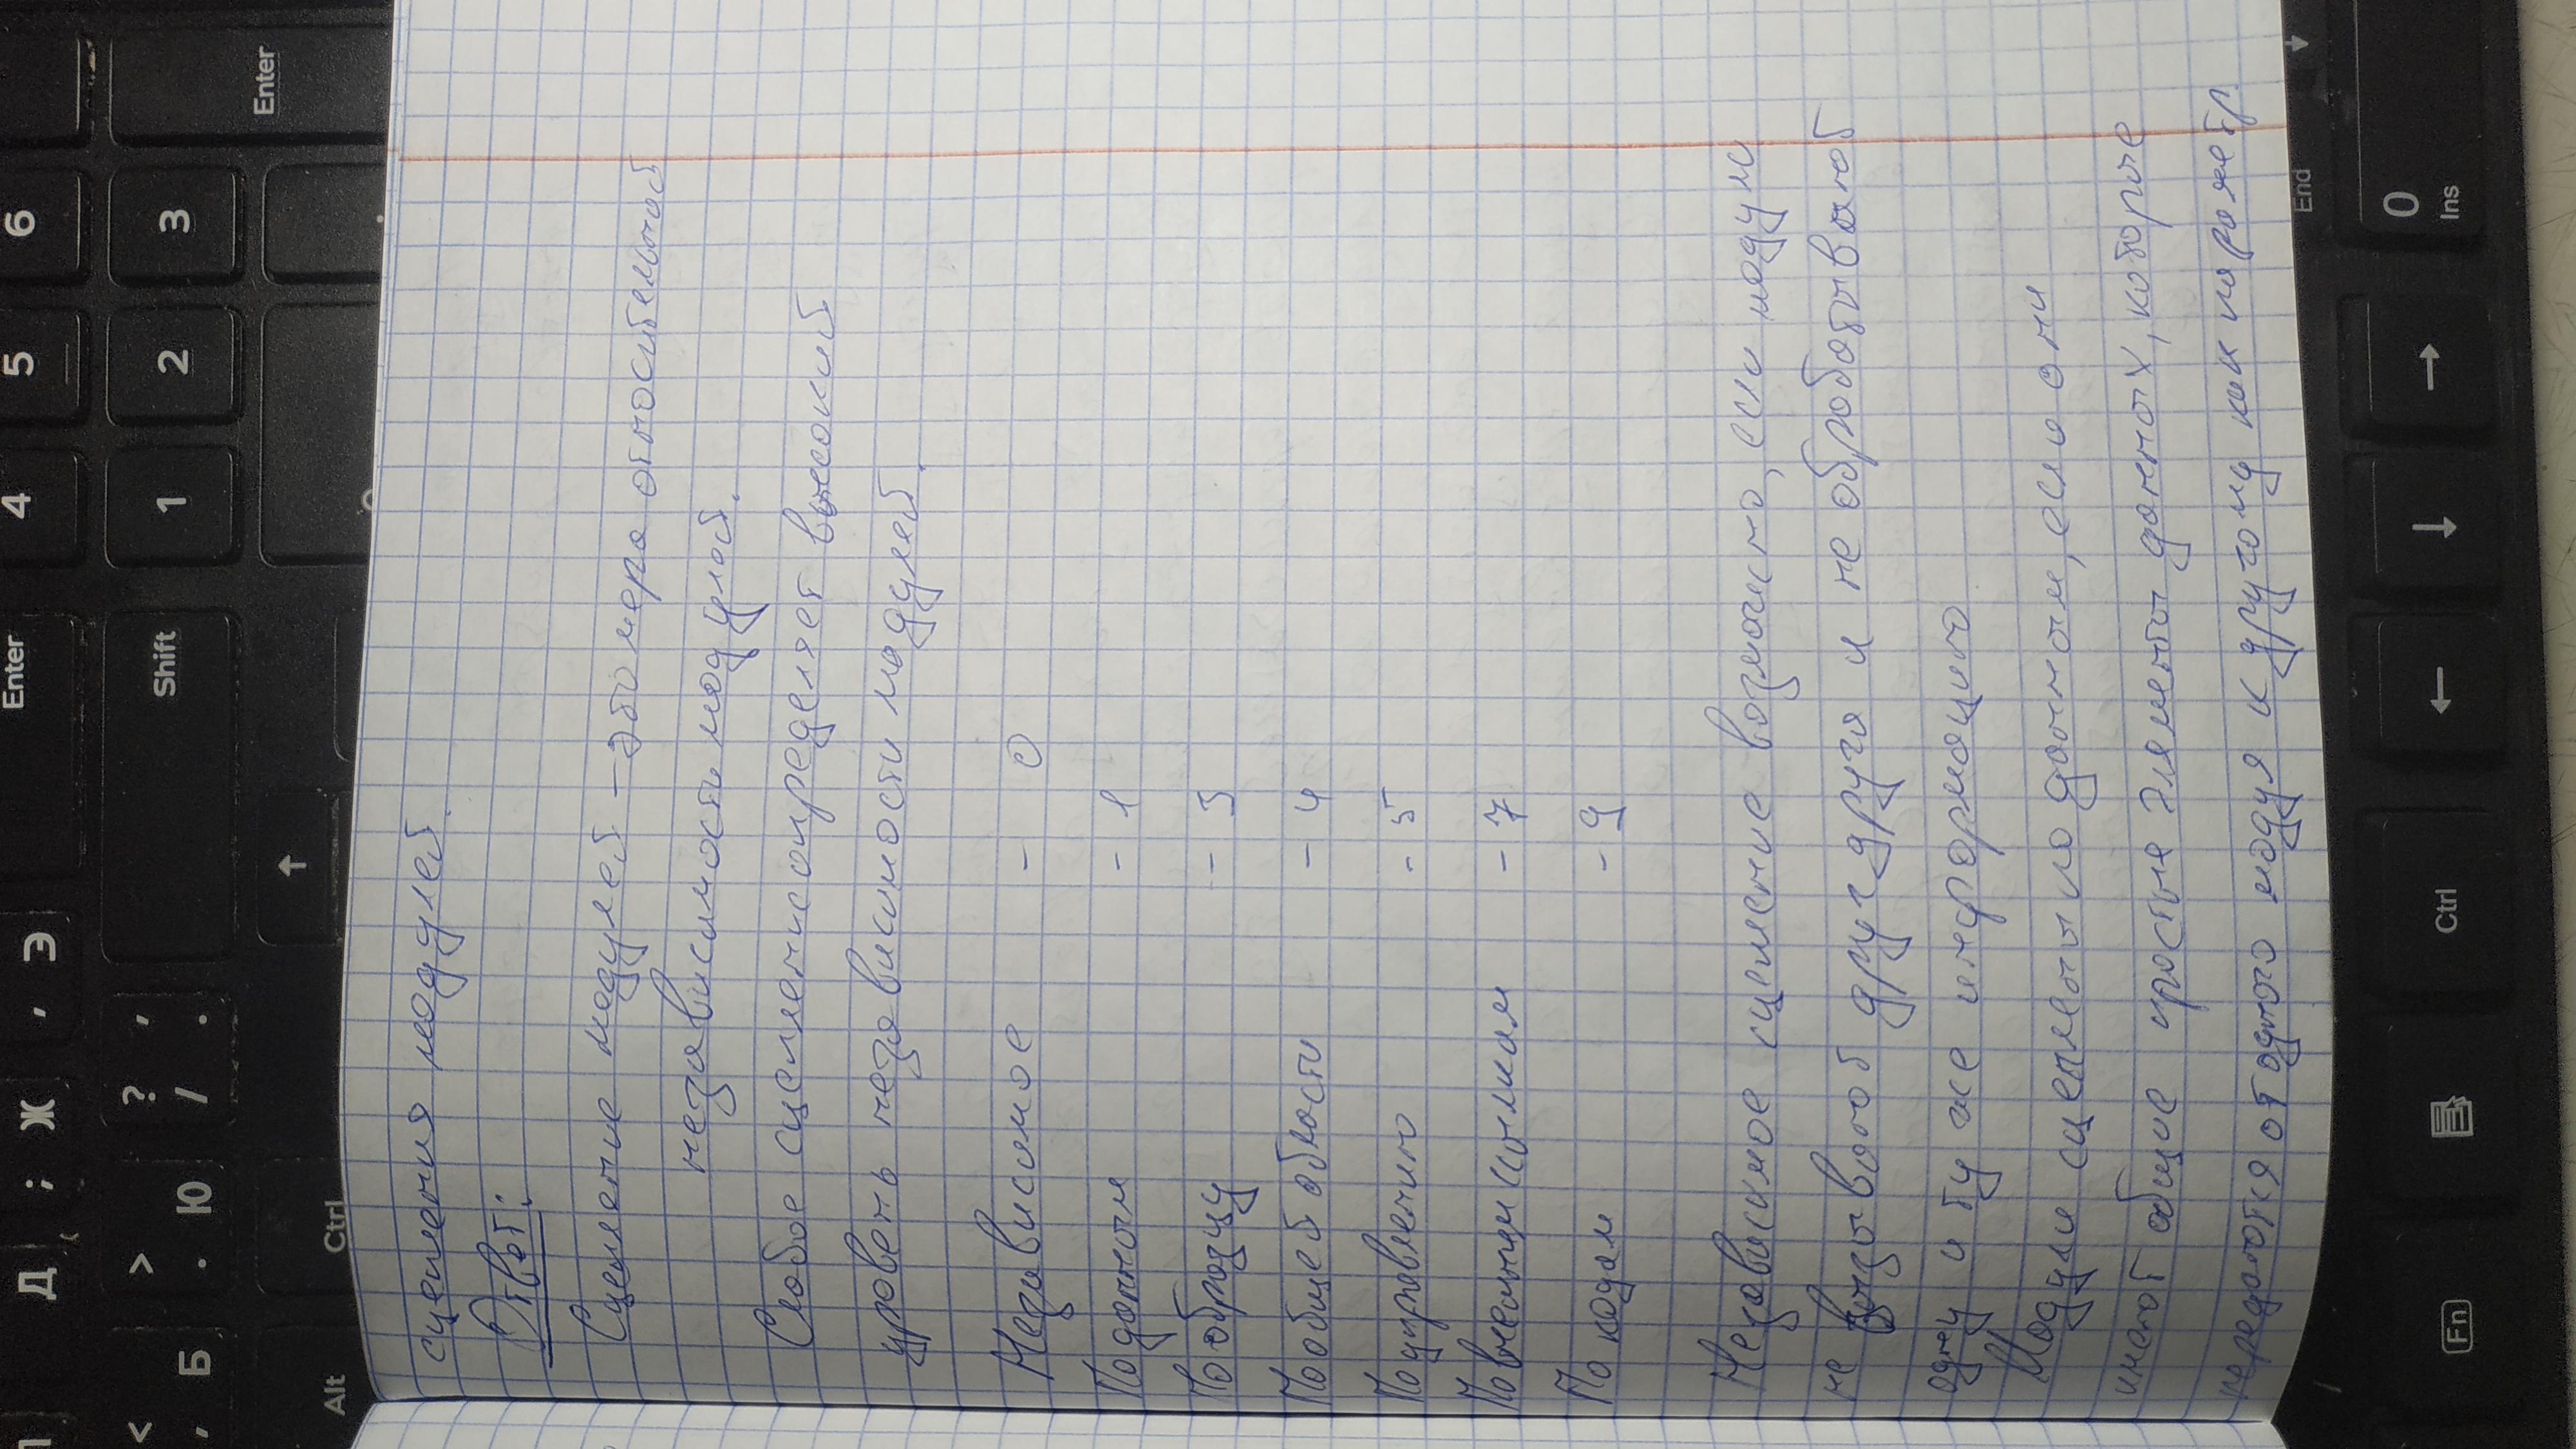 Д ; Ж , Э Enter 4 5 6
< > ? , Shift 1 2 3
, Б . Ю / .
Enter
Alt Ctrl ↑
сцепления модулей.
Ответ:
Сцепление модулей – это мера относительной
независимости модулей.
Слабое сцепление определяет высокий
уровень независимости модулей.
Независимое – 0
По данным – 1
По образцу – 3
По общей области – 4
По управлению – 5
По внешним ссылкам – 7
По кодам – 9
Независимое сцепление возможно, если модули
не вызывают друг друга и не обрабатывают
одну и ту же информацию
Модули сцеплены по данным, если они
имеют общие простые элементы данных, которые
передаются от одного модуя к другому как параметр.
End ↓
Fn Ctrl ← ↓ → 0
Ins